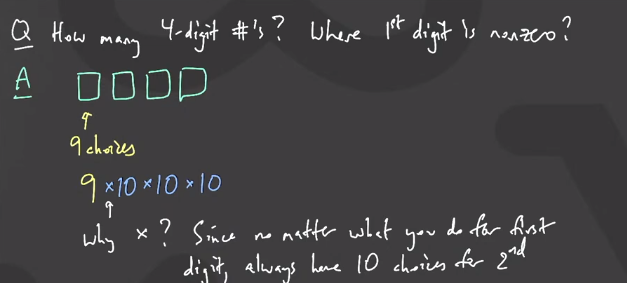 Q How many 4-digit #'s? Where 1st digit is nonzero?
A
9 choices
9 × 10 × 10 × 10
why ×? Since no matter what you do for first
digit, always have 10 choices for 2nd